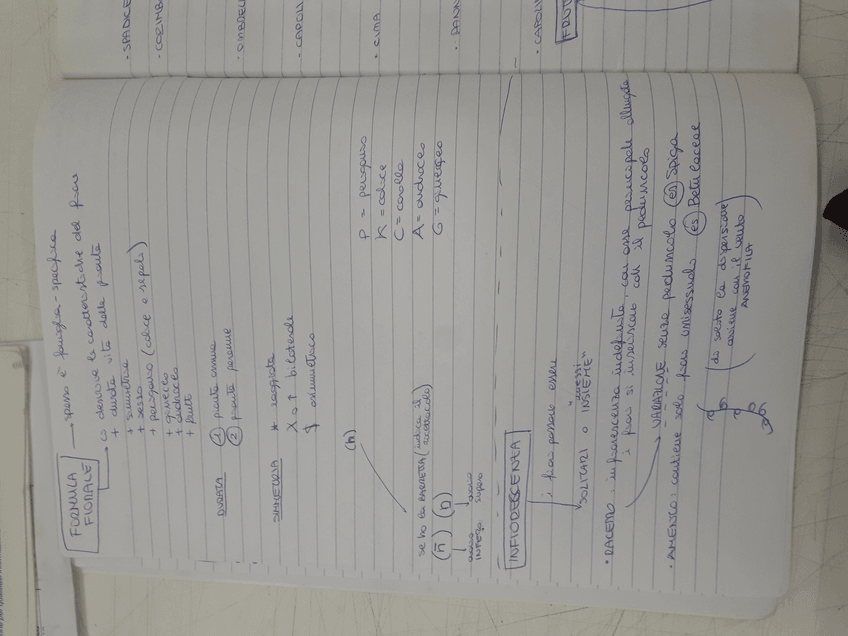 FORMULA FIORALE → spesso è famiglia-specifica
↳ descrive le caratteristiche del fiore
+ durata vita della pianta
+ simmetria
+ sesso
+ perigonio (calice e sepali)
+ gineceo
+ androceo
+ frutti
DURATA ① pianta annua
② pianta perenne
SIMMETRIA * raggiata
X o ↑ bilaterale
asimmetrico
(n)
P = perigonio
K = calice
C = corolla
A = androceo
G = gineceo
se ho la BARRETTA (indica il ricettacolo)
(n̅) (n)
ovario INFERO
ovario supero
INFIORESCENZA
i fiori possono essere
SOLITARI o "messi INSIEME"
• RACEMO: infiorescenza indefinita, con asse principale allungato
i fiori si inseriscono con il peduncolo
→ VARIAZIONE senza peduncolo (es) Spiga
• AMENTO: contiene solo fiori unisessuali (es) Betulaceae
(di solito la dispersione
avviene con il vento)
ANEMOFILA
• SPADICE
• CORIMB
• OMBRELL
• CAPOLI
• CIMA
• PANN
• CAPOLI
FRUT